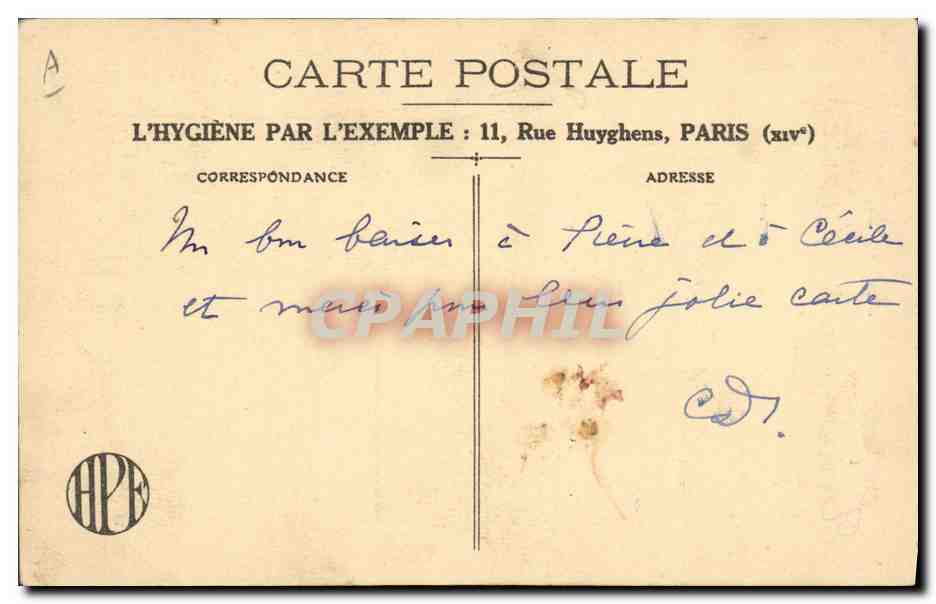 A
CARTE POSTALE
L'HYGIÈNE PAR L'EXEMPLE : 11, Rue Huyghens, PARIS (XIVe)
CORRESPONDANCE
ADRESSE
Un bon baiser à Pierre et à Cécile
et merci pour leur jolie carte
CPAPHIL
HPE